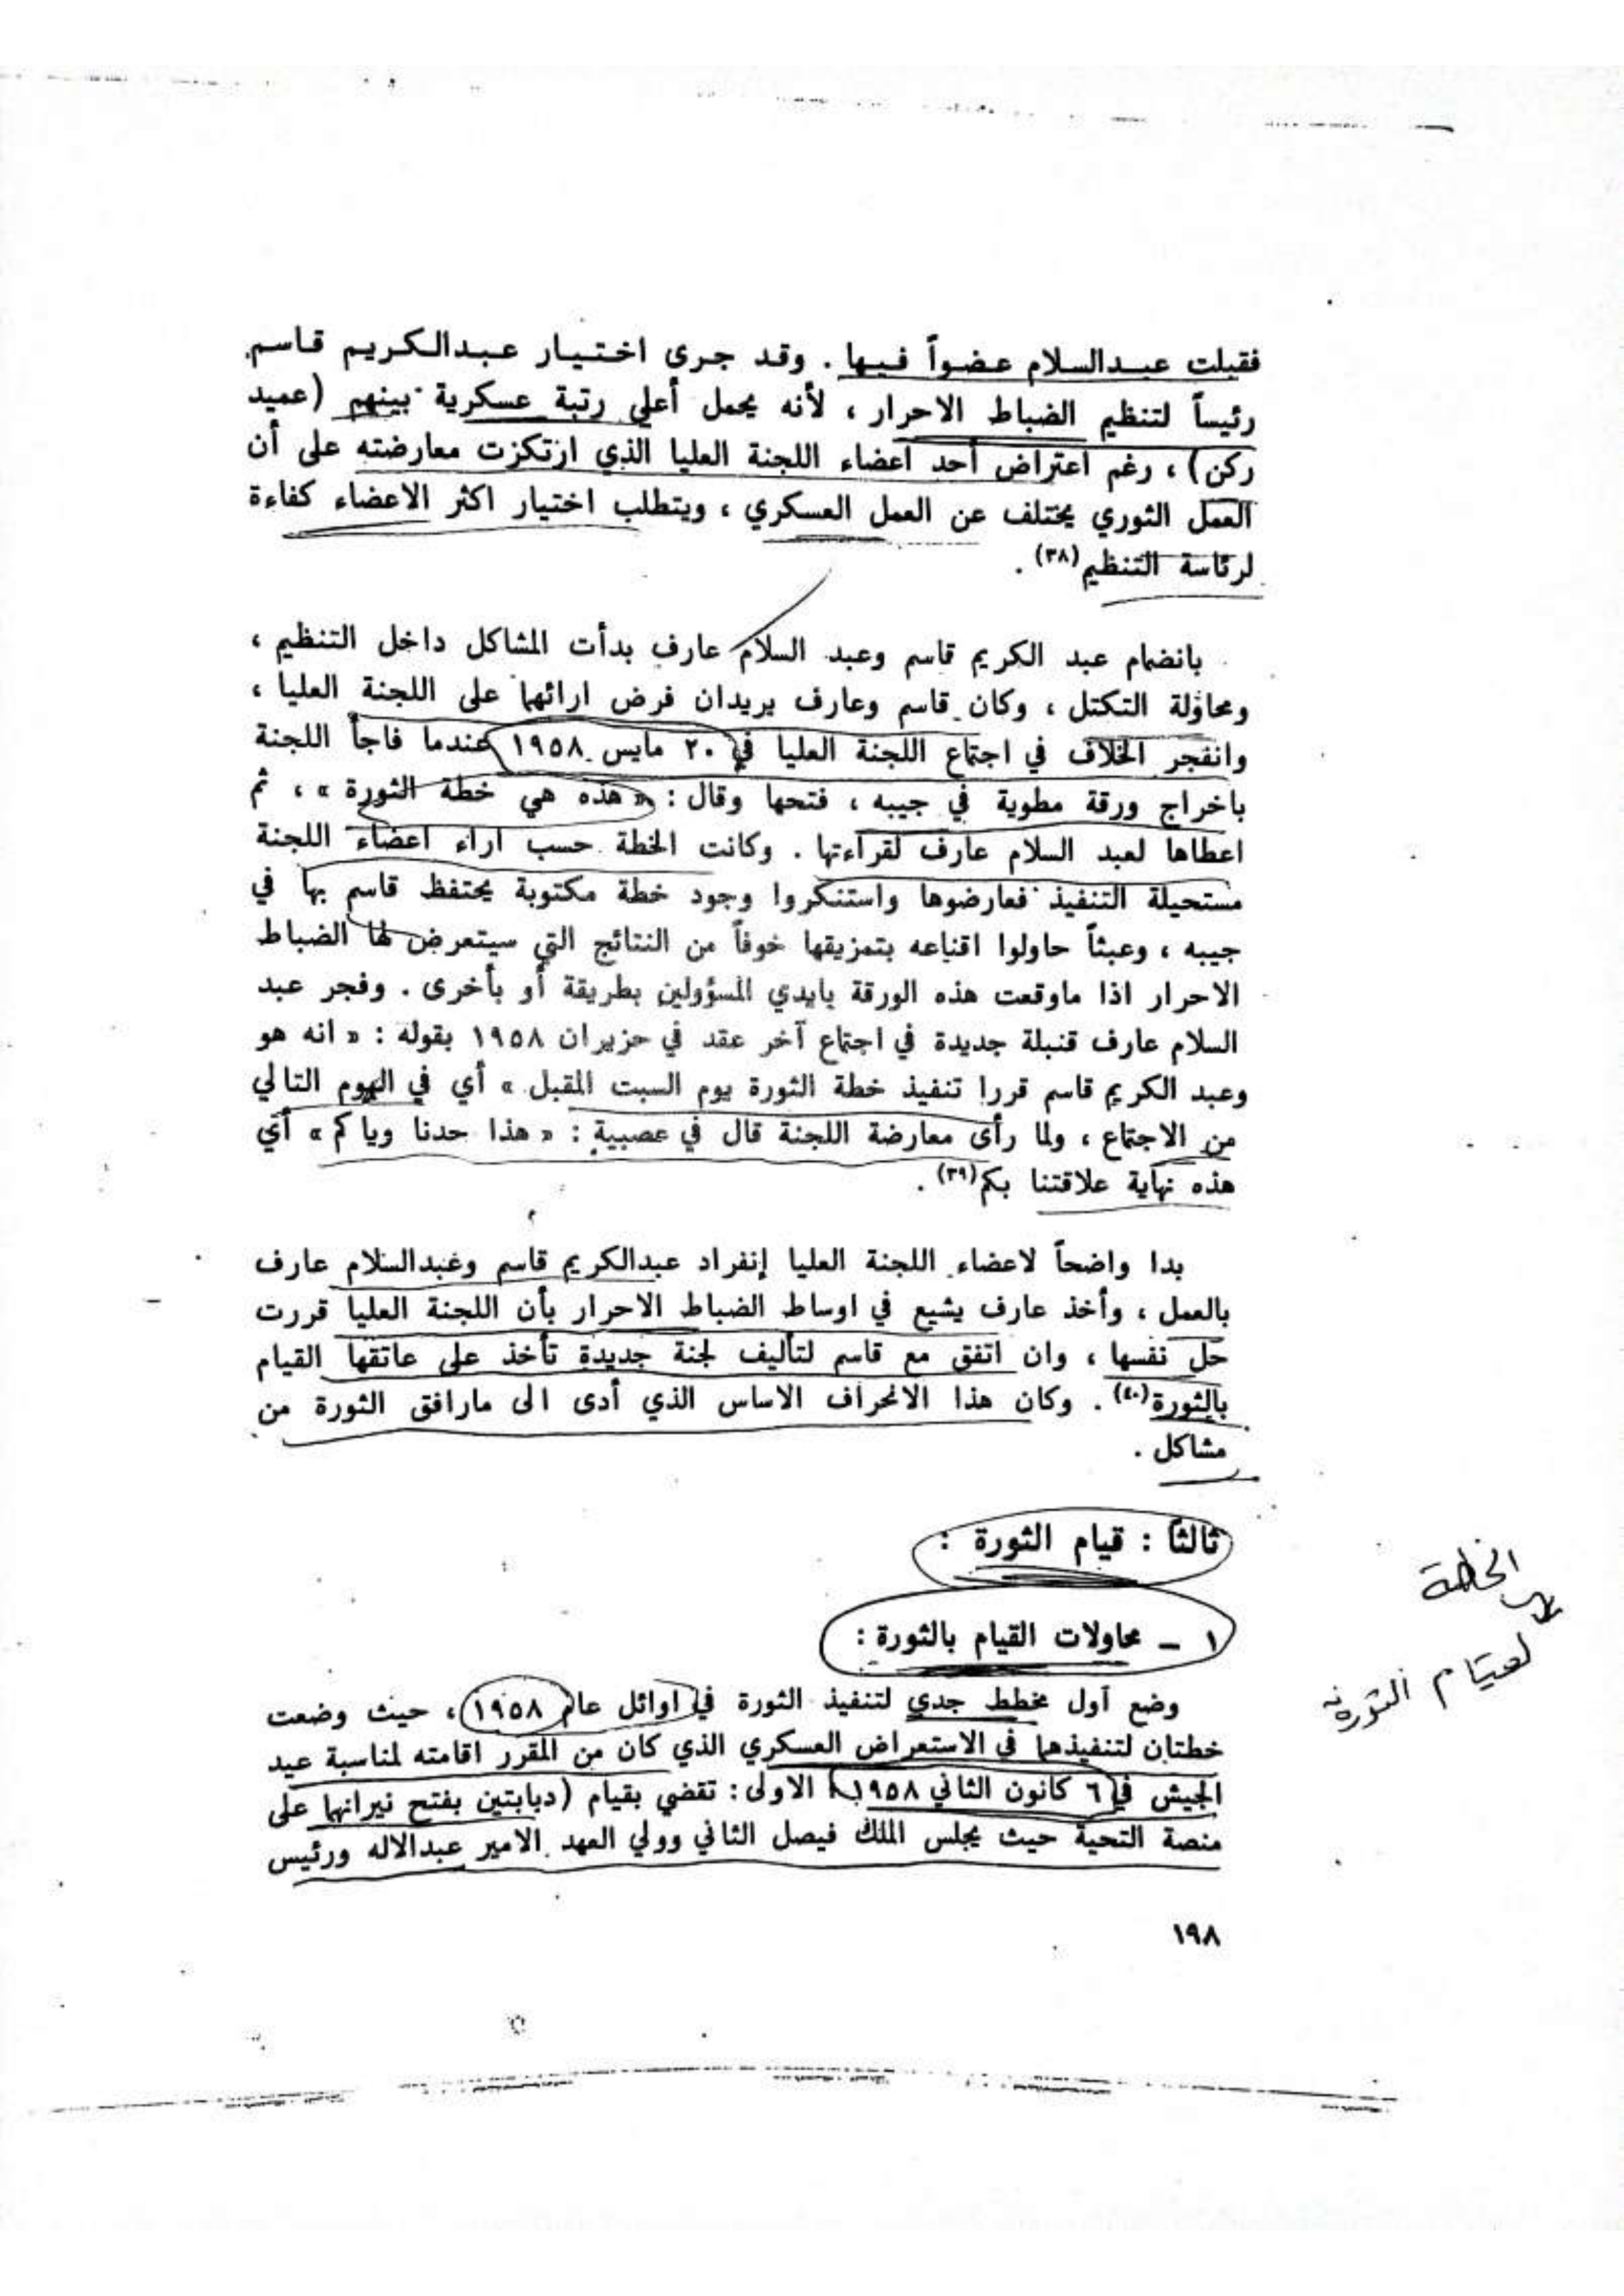 فقبلت عبدالسلام عضواً فيها . وقد جرى اختيار عبدالكريم قاسم
رئيساً لتنظيم الضباط الاحرار ، لأنه يحمل أعلى رتبة عسكرية بينهم (عميد
ركن) ، رغم اعتراض أحد اعضاء اللجنة العليا الذي ارتكزت معارضته على أن
العمل الثوري يختلف عن العمل العسكري ، ويتطلب اختيار اكثر الاعضاء كفاءة
لرئاسة التنظيم(٣٨) .
بانضمام عبد الكريم قاسم وعبد السلام عارف بدأت المشاكل داخل التنظيم ،
ومحاولة التكتل ، وكان قاسم وعارف يريدان فرض ارائهما على اللجنة العليا ،
وانفجر الخلاف في اجتماع اللجنة العليا في ٢٠ مايس ١٩٥٨ عندما فاجأ اللجنة
باخراج ورقة مطوية في جيبه ، فتحها وقال : « هذه هي خطة الثورة » ، ثم
اعطاها لعبد السلام عارف لقراءتها . وكانت الخطة حسب اراء اعضاء اللجنة
مستحيلة التنفيذ فعارضوها واستنكروا وجود خطة مكتوبة يحتفظ قاسم بها في
جيبه ، وعبثاً حاولوا اقناعه بتمزيقها خوفاً من النتائج التي سيتعرض لها الضباط
الاحرار اذا ماوقعت هذه الورقة بايدي المسؤولين بطريقة أو بأخرى . وفجر عبد
السلام عارف قنبلة جديدة في اجتماع آخر عقد في حزيران ١٩٥٨ بقوله : « انه هو
وعبد الكريم قاسم قررا تنفيذ خطة الثورة يوم السبت المقبل » أي في اليوم التالي
من الاجتماع ، ولما رأى معارضة اللجنة قال في عصبية : « هذا حدنا وياكم » أي
هذه نهاية علاقتنا بكم(٣٩) .
بدا واضحاً لاعضاء اللجنة العليا إنفراد عبدالكريم قاسم وعبدالسلام عارف
بالعمل ، وأخذ عارف يشيع في اوساط الضباط الاحرار بأن اللجنة العليا قررت
حل نفسها ، وان اتفق مع قاسم لتأليف لجنة جديدة تأخذ على عاتقها القيام
بالثورة(٤٠) . وكان هذا الانحراف الاساس الذي أدى الى مارافق الثورة من
مشاكل .
ثالثاً : قيام الثورة :
١ – محاولات القيام بالثورة :
وضع أول مخطط جدي لتنفيذ الثورة في اوائل عام ١٩٥٨ ، حيث وضعت
خطتان لتنفيذهما في الاستعراض العسكري الذي كان من المقرر اقامته لمناسبة عيد
الجيش في ٦ كانون الثاني ١٩٥٨ الاولى : تقضي بقيام (دبابتين بفتح نيرانهما على
منصة التحية حيث يجلس الملك فيصل الثاني وولي العهد الامير عبدالاله ورئيس
١٩٨
الخطة
لقيام الثورة